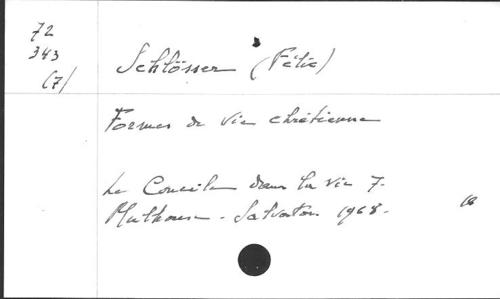 72
343
(7)
Schlösser (Félix)
Formes de vie chrétienne
Le Concile dans la vie 7.
Mulhouse - Salvator 1968.